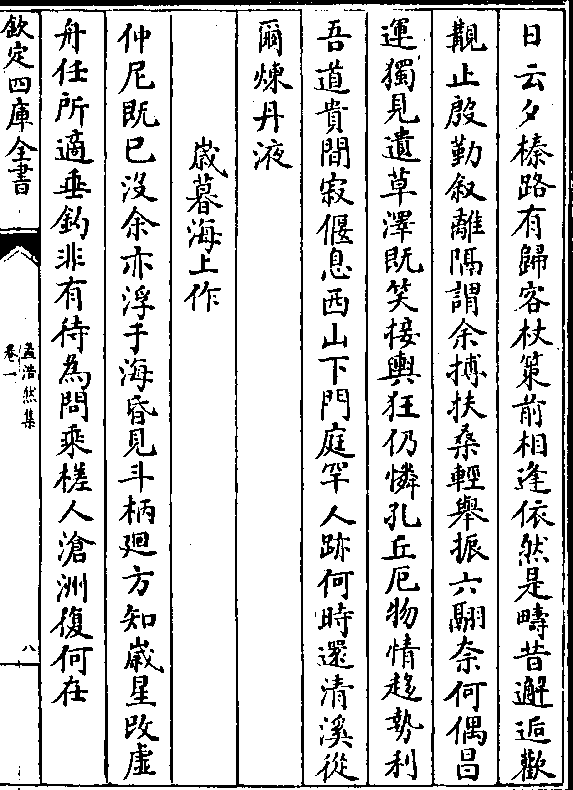 日云夕榛路有歸客杖策前相逢依然是疇昔邂逅歡
覯止殷勤叙離隔謂余搏扶桑輕舉振六翮奈何偶昌
運獨見遺草澤既笑接輿狂仍憐孔丘厄物情趨勢利
吾道貴閒寂偃息西山下門庭罕人跡何時還清溪從
爾煉丹液
嵗暮海上作
仲尼既已沒余亦浮于海昏見斗柄廻方知嵗星改虛
舟任所適垂釣非有待為問乘槎人滄洲復何在
欽定四庫全書
孟浩然集
卷一
八